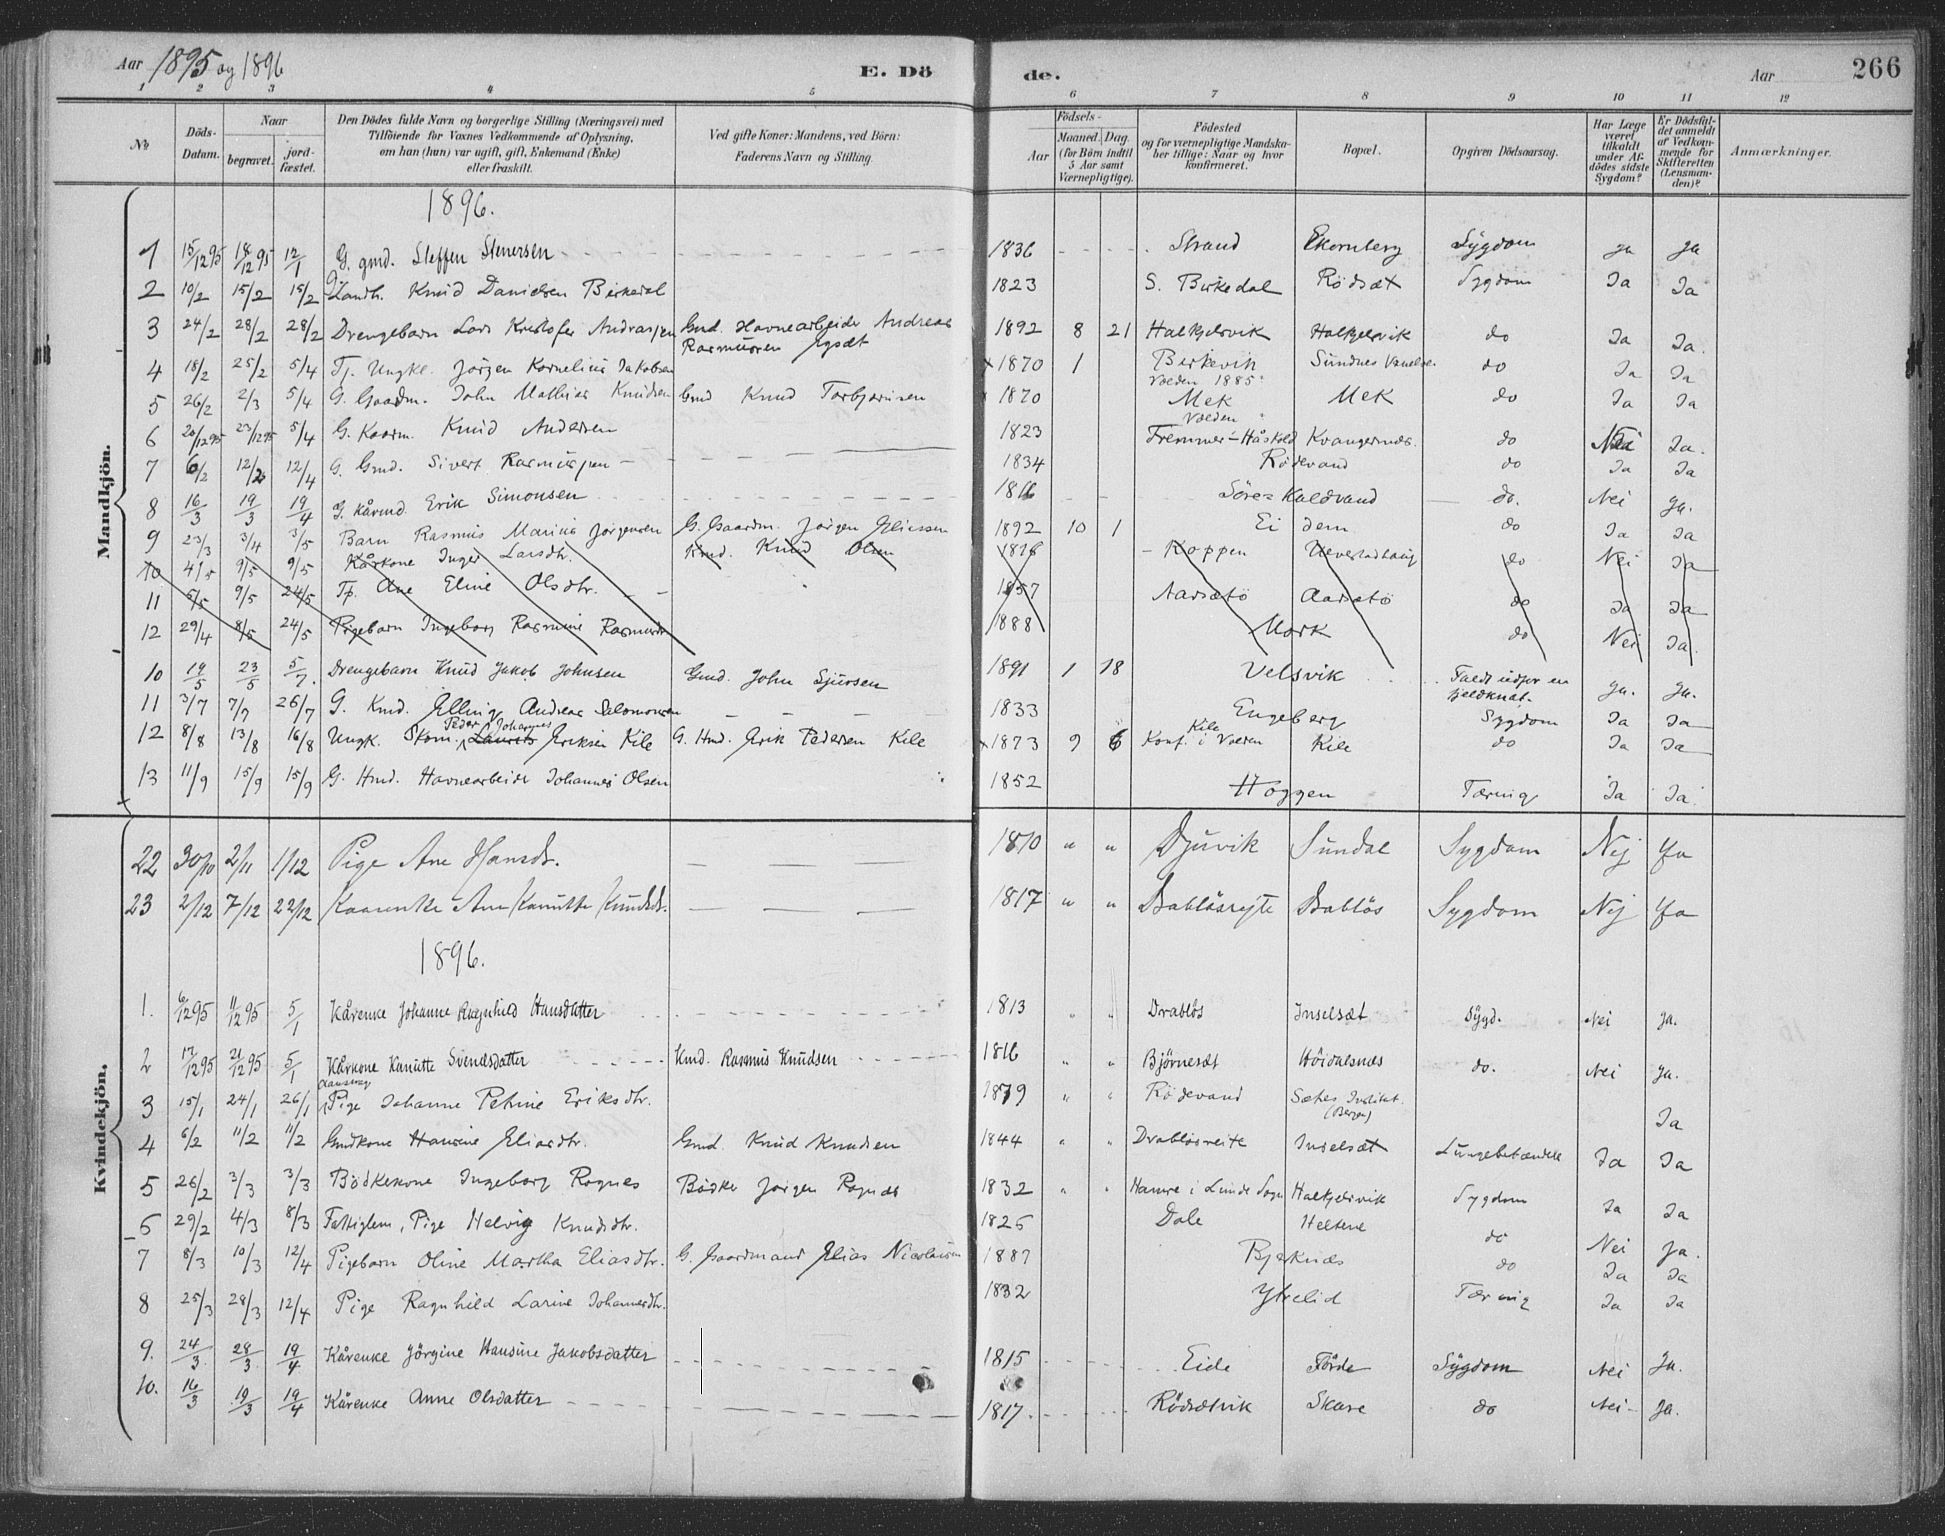 Aar 1895 og 1896 E. Dö de. Aar 266
1 2 3 4 5 6 7 8 9 10 11 12
No Döds-Datum. Naar begravet. jord-fæstet. Den Dödes fulde Navn og borgerlige Stilling (Næringsvei) med Tilföiende for Voxnes Vedkommende af Oplysning, om han (hun) var ugift, gift, Enkemand (Enke) eller fraskilt. Ved gifte Koner: Mandens, ved Börn: Faderens Navn og Stilling. Aar Födsels- Maaned. Dag. (for Börn indtil 5 Aar samt Værnepligtige). Födested og for værnepligtige Mandskaber tillige: Naar og hvor konfirmeret. Bopæl. Opgiven Dödsaarsag. Har Læge været tilkaldt under Afdödes sidste Sygdom? Er Dödsfaldet anmeldt af Vedkommende for Skifteretten (Lensmanden)? Anmærkninger.
Mandkjön.
1896.
1 15/12 95 18/12 95 12/1 G. gmd. Steffen Stenersen 1836 Strand Ekornberg Sygdom ja ja
2 10/2 15/2 15/2 Landh. Knud Danielsen Birkedal 1823 S. Birkedal Rödsæt Sygdom Ja Ja
3 24/2 28/2 28/2 Drengebarn Lars Kristofer Andreasen Gmd. Havnearbeider Andreas
Rasmussen Ygsæt 1892 8 21 Halkjelsvik Halkjelsvik do Ja Ja.
4 18/2 25/2 5/4 Tj. Ungk. Jörgen Kornelius Jakobsen x 1870 1 Birkevik Sundnes Vanelven do Ja Ja
Volden 1885
5 26/2 2/3 5/4 G. Gaardm. John Mathias Knudsen Gmd Knud Torbjørnsen x 1870 Mek Mek do Ja Ja
Volden
6 20/12 95 23/12 95 5/4 G. Kaarm. Knud Andersen 1823 Fremmer-Håskold Kvangernæs. do Nei Ja.
7 6/2 12/2 12/4 G. Gmd. Sivert Rasmussen 1834 Rödevand do Ja Ja
8 16/3 19/3 19/4 G. Kårmd. Erik Simonsen 1816 Söre Kaldvand do. Nei ja.
9 23/3 3/4 3/5 Barn Rasmus Marius Jörgensen G. Gaardm. Jörgen Eliassen 1892 10 1 Ei dem do Ja Ja
10 4/5 9/5 9/5 Kårkone Inger Larsdtr. Kmd. Knud Olsen 1816 Koppen do Nei Ja
11 5/5 9/5 24/5 Tp. Ane Eline Olsdtr. 1857 Aarsætö Aarsætö do Ja Ja
12 29/4 8/5 24/5 Pigebarn Ingeborg Rasmine Rasmusdtr 1888 Mork do Nei Ja.
10 19/5 23/5 5/7. Drengebarn Knud Jakob Johnsen Gmd. John Sjursen 1891 1 18 Velsvik Faldt udfor en
fjeldknat. ja. ja.
11 3/7 7/7 26/7 G. Kmd. Elling Andreas Salomonsen 1833 Engeberg Sygdom Ja Ja
Peder Johannes Kile
12 8/8 13/8 16/8 Ungk. Skom. Laurits Eriksen Kile G. Hmd. Erik Pedersen Kile x 1873 9 6 Konf. i Volden Kile do Ja Ja
13 11/9 15/9 15/9 G. Hmd. Havnearbeider Johannes Olsen 1852 Höggen Tæring Ja Ja
Kvindekjön.
22 30/10 2/11 1/12 Pige Ane Hansdr. 1870 " " Djuvik Sundal Sygdom Nej Ja
23 2/12 7/12 22/12 Kaarenke Ane Kanutte Knudsdr. 1817 " " Drablösreite Drablös Sygdom Nej Ja
1896.
1. 6/12 95 11/12 95 5/1 Kårenke Johanne Ragnhild Hansdatter 1813 " " Drablös Inselsæt Sygd. Nei ja.
2 17/12 95 21/12 95 5/1 Kårkone Kanutte Svendsdatter Kmd. Rasmus Knudsen 1816 " " Björnesæt Höidalsnæs do. Nei ja.
3 15/1 24/1 26/1 Pige Johanne Petrine Eriksdtr. 1879 " " Rödevand Sætes Institut.
(Bergen) Ja
4 6/2 11/2 11/2 Gmdkone Hansine Eliasdtr. Gmd. Knud Knudsen 1844 " " Drablösreite Inselsæt Lungebetændelse Ja Ja
5 26/2 3/3 3/3 Bödkerkone Ingeborg Rognes Bödker Jörgen Rognes 1832 " " Hamre i Linde Sogn Halkjelsvik Sygdom Ja Ja
6 29/2 4/3 8/3 Fattiglem, Pige Helvig Knudsdtr. 1825 Dale Heltene do Nei ja.
7 8/3 10/3 12/4 Pigebarn Oline Martha Eliasdtr. G. Gaardmand Elias Nicolaisen 1887 Bjerknæs do Ja Ja
8 25/3 28/3 12/4 Pige Ragnhild Larine Johannesdtr. 1832 Ytrelid Tæring Ja Ja
9. 24/3 28/3 19/4 Kårenke Jörgine Hansine Jakobsdatter 1815 Eide Förde Sygdom Nei Ja.
10. 16/3 19/3 19/4 Kårenke Anne Olsdatter 1817. Rödsætvik Skare do Nei Ja.